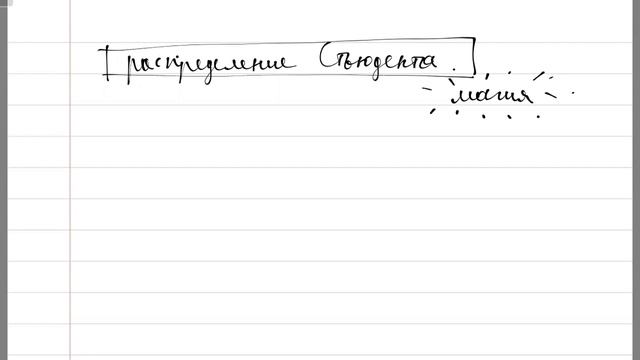 распределение Стьюдента.
магия